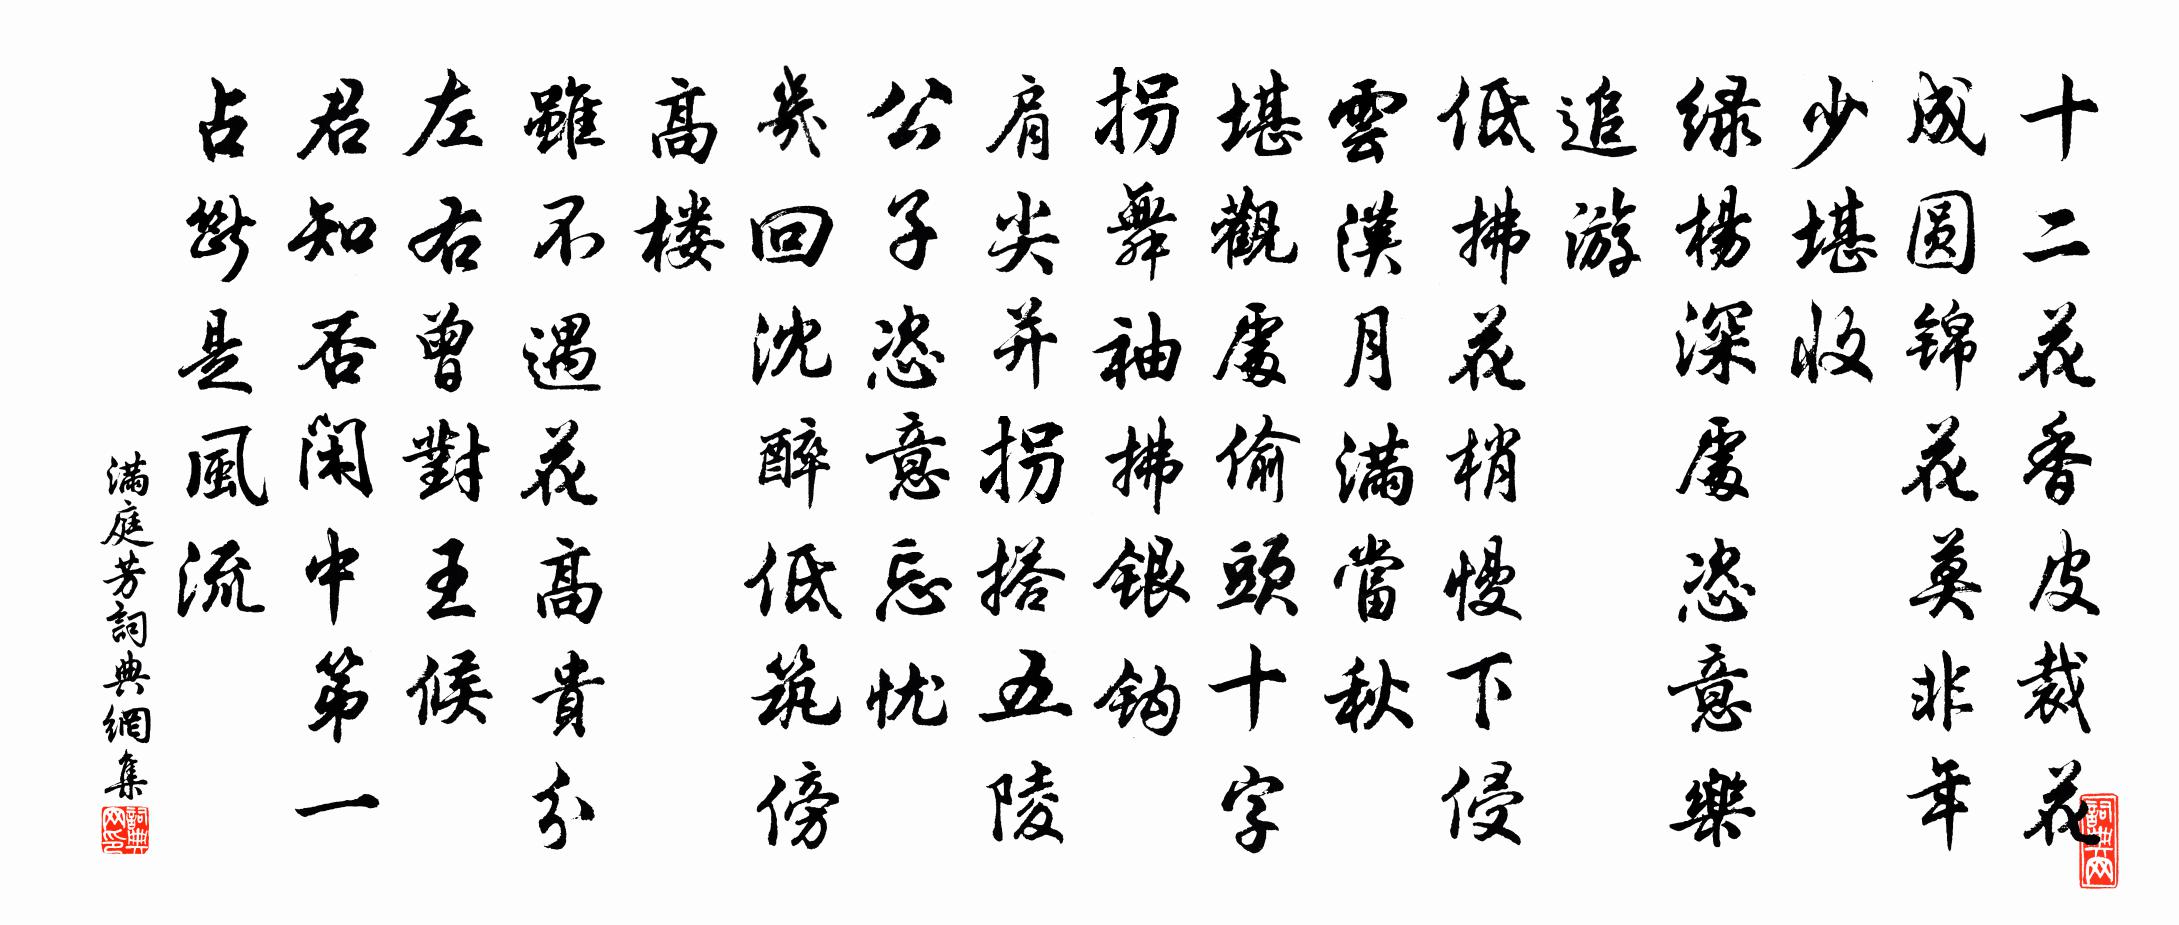 十二花香皮裁花
成圆锦花莫非年
少堪收
绿楊深處恣意樂
追游
低拂花梢慢下侵
雲漢月滿當秋
堪觀處偷頭十字
拐舞袖拂銀鈎
肩尖并拐搭五陵
公子恣意忘忧
幾回沈醉低筑傍
高楼
雖不遇花高貴分
左右曾對王候
君知否閑中第一
占斷是風流
滿庭芳詞典網集
詞典网
詞典网印